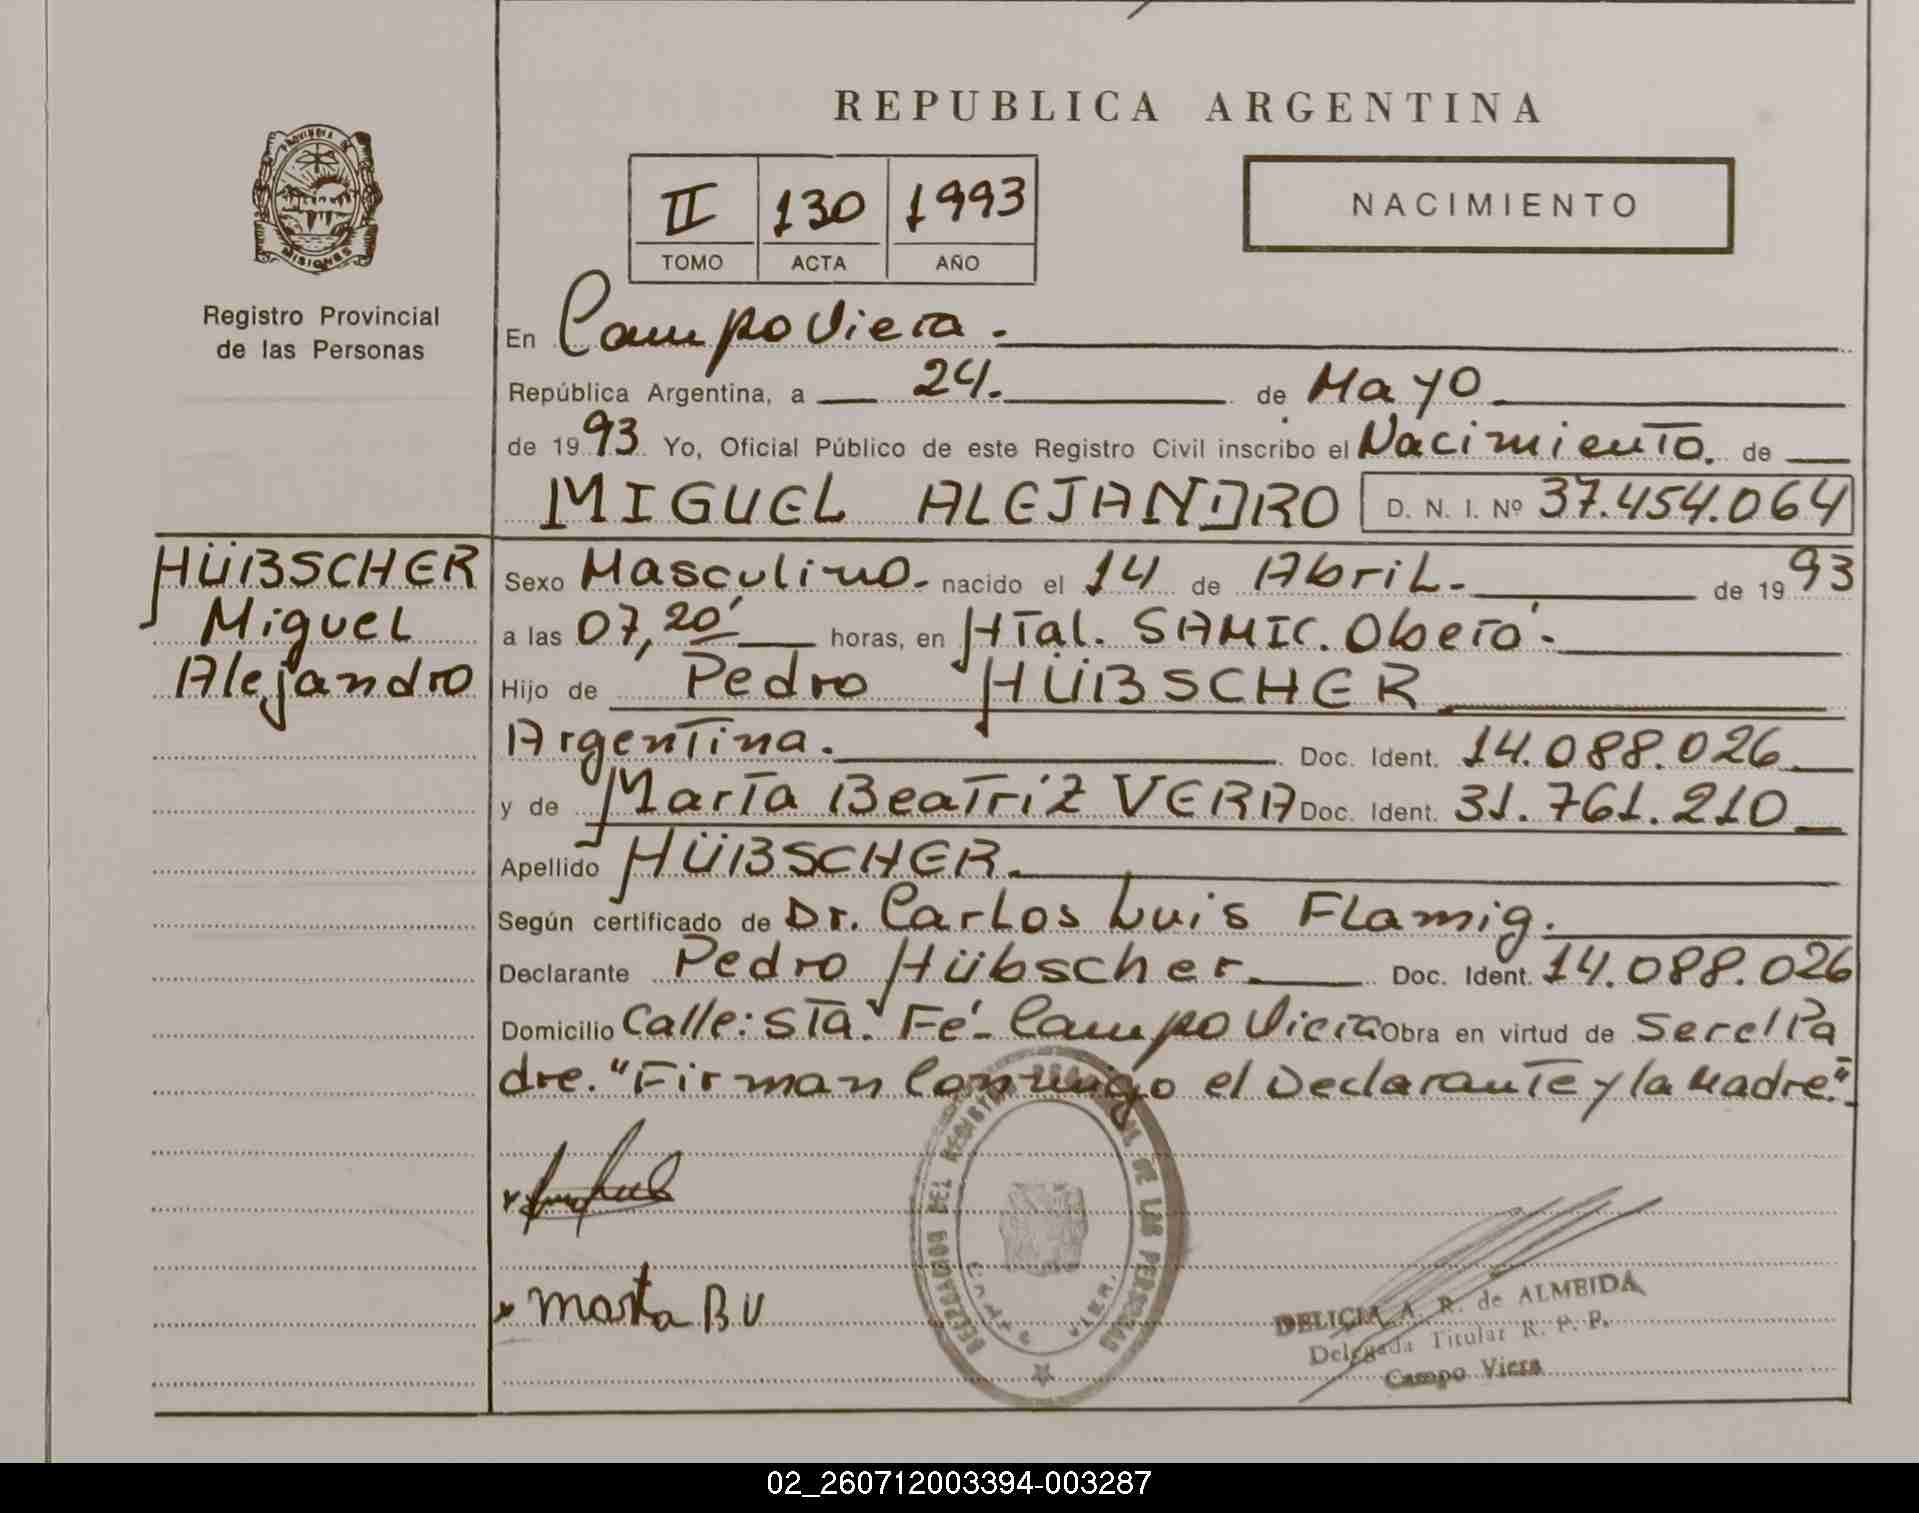 REPUBLICA ARGENTINA
PROVINCIA DE
MISIONES
Registro Provincial
de las Personas
II 130 1993
TOMO ACTA AÑO
NACIMIENTO
En Campo Viera.-
República Argentina, a 24. de Mayo
de 1993 Yo, Oficial Público de este Registro Civil inscribo el Nacimiento. de
MIGUEL ALEJANDRO D. N. I. Nº 37.454.064
HÜBSCHER
Miguel
Alejandro
Sexo Masculino.- nacido el 14 de Abril.- de 1993
a las 07,20' horas, en HTal. SAMIC. Oberá.-
Hijo de Pedro HÜBSCHER
Argentina. Doc. Ident. 14.088.026
y de Marta Beatríz VERA Doc. Ident. 31.761.210
Apellido HÜBSCHER.
Según certificado de Dr. Carlos Luis Flamig.
Declarante Pedro Hübscher Doc. Ident. 14.088.026
Domicilio Calle: Sta. Fé.- Campo Viera Obra en virtud de Ser el Pa
dre. "Firman Conmigo el Declarante y la Madre."-
x Marta B V
DELEGACION DEL REGISTRO DE LAS PERSONAS
DELICIA A. R. de ALMEIDA
Delegada Titular R. P. P.
Campo Viera
02_260712003394-003287